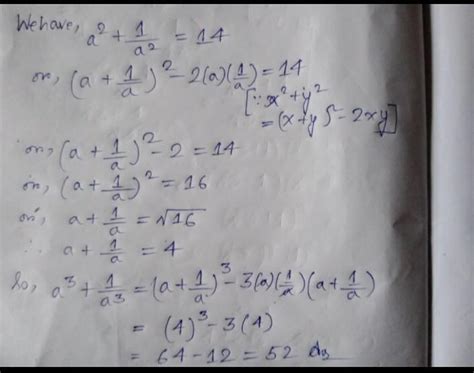 We have, a² + 1/a² = 14
or, (a + 1/a)² - 2(a)(1/a) = 14
[∵ x² + y²
= (x+y)² - 2xy]
or, (a + 1/a)² - 2 = 14
or, (a + 1/a)² = 16
or, a + 1/a = √16
∴ a + 1/a = 4
So, a³ + 1/a³ = (a + 1/a)³ - 3(a)(1/a)(a + 1/a)
= (4)³ - 3(4)
= 64 - 12 = 52